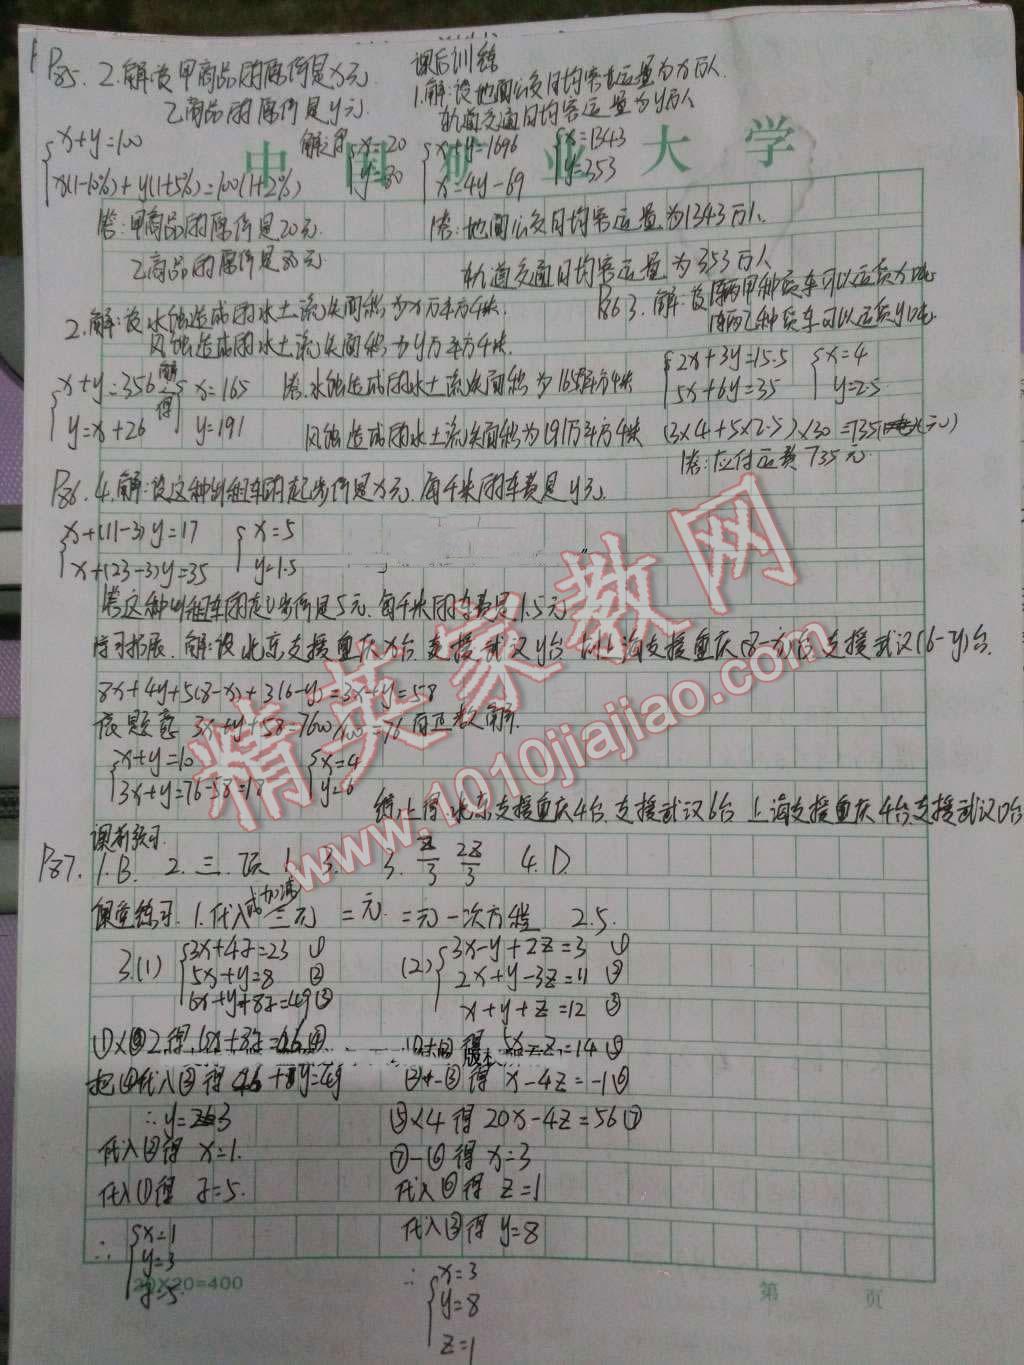 P85. 2.解:设甲商品的原价是x元
乙商品的原价是y元
{x+y=100
x(1-10%)+y(1+5%)=100(1+2%)
解之得{x=20
y=80
答:甲商品的原价是20元
乙商品的原价是80元
课后训练
1.解:设地面公交日均客运量为x万人
轨道交通日均客运量为y万人
{x+y=1696
x=4y-69
{x=1343
y=353
答:地面公交日均客运量为1343万人.
轨道交通日均客运量为353万人
中国矿业大学
2.解:设水蚀造成的水土流失面积为x万平方千米.
风蚀造成的水土流失面积为y万平方千米.
{x+y=356
y=x+26
解得
{x=165
y=191
答.水蚀造成的水土流失面积为165万平方千米
风蚀造成的水土流失面积为191万平方千米
P86 3.解:设每辆甲种货车可以运货x吨
每辆乙种货车可以运货y吨
{2x+3y=15.5
5x+6y=35
{x=4
y=2.5
(3×4+5×2.5)×30=735(元)
答:应付运费735元.
P86.4.解:设这种出租车的起步价是x元.每千米的车费是y元.
{x+(11-3)y=17
x+(23-3)y=35
{x=5
y=1.5
答这种出租车的起步价是5元.每千米的车费是1.5元
解:设北京支援重庆x台.支援武汉y台 则上海支援重庆(8-x)台 支援武汉(6-y)台.
8x+4y+5(8-x)+3(6-y)=3x+y=58
依题意 3x+y+58=7600/100=76 有正整数解.
{x+y=10
3x+y=76-58=18
{x=4
y=6
综上得.北京支援重庆4台.支援武汉6台 上海支援重庆4台支援武汉0台
课前预习
P87. 1.B. 2.三.项 1. 3. 3. z/3 2z/3 4.D
课堂练习.1.代入或加减 三元 二元 二元一次方程 2.5.
3.(1) {3x+4z=23 ①
5x+y=8 ②
6x+y+8z=49③
①×2得,6x+8z=46④
把④代入③得46+y=49
∴y=3
代入②得 x=1.
代入①得 z=5.
∴{x=1
y=3
z=5
(2){3x-y+2z=3 ①
2x+y-3z=11 ②
x+y+z=12 ③
①+②得 5x-z=14④
②-③得 x-4z=-1⑥
⑤×4得 20x-4z=56⑦
⑦-⑥得 x=3
代入⑥得 z=1
代入③得 y=8
∴{x=3
y=8
z=1
20×20=400
第 页
精英家教网
www.1010jiajiao.com